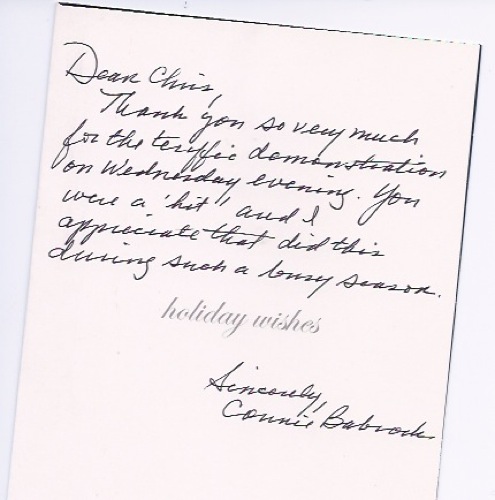 Dear Chris,
Thank you so very much
for the teriffic demonstration
on Wednesday evening. You
were a 'hit' and I
appreciate that did this
during such a busy season.
holiday wishes
Sincerely,
Connie